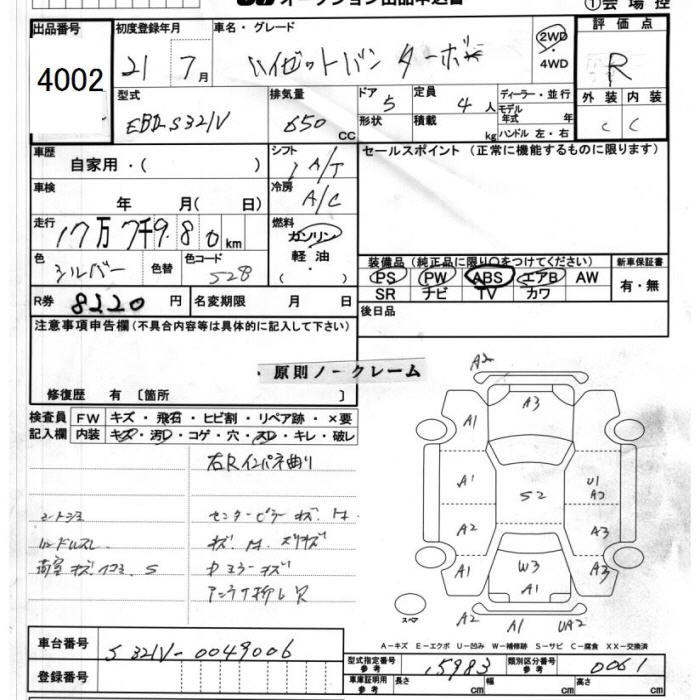 オークション出品申込書
①会場控
出品番号 初度登録年月 車名・グレード 評価点
4002 21年7月 ハイゼットバン ターボ 2WD・4WD R
型式 排気量 ドア 定員 ディーラー・並行 外装 内装
EBD-S321V 650cc 5 4人 モデル年式 年 C C
形状 積載 kg ハンドル 左・右
車歴 自家用・( ) シフト A/T セールスポイント (正常に機能するものに限ります)
車検 年 月( 日) 冷房 A/C
走行 17万7千980km 燃料 ガソリン・軽油・( )
色 シルバー 色替 色コード S28
装備品 (純正品に限り○をつけてください) 新車保証書
PS PW ABS エアB AW 有・無
SR ナビ TV カワ
R券 8220円 名変期限 月 日 後日品
注意事項申告欄 (不具合内容等は具体的に記入して下さい)
原則ノークレーム
修復歴 有 〔箇所 〕
検査員記入欄 FW キズ・飛石・ヒビ割・リペア跡・×要
内装 キズ・汚D・コゲ・穴・スレ・キレ・破レ
右Rインパネ曲り
センターピラーキズ
中ミラーキズ
アンテナ
A2
A3
A1
A1 S2 U1 A2
A2 A3
A1 W3 A3
A1
スペア
A2 A1 UA2
A−キズ E−エクボ U−凹み W−補修跡 S−サビ C−腐食 XX−交換済
車台番号 S321V-0049006
登録番号
型式指定番号 参考 15983 類別区分番号 参考 0061
車庫証明用 参考 長さ cm 幅 cm 高さ cm